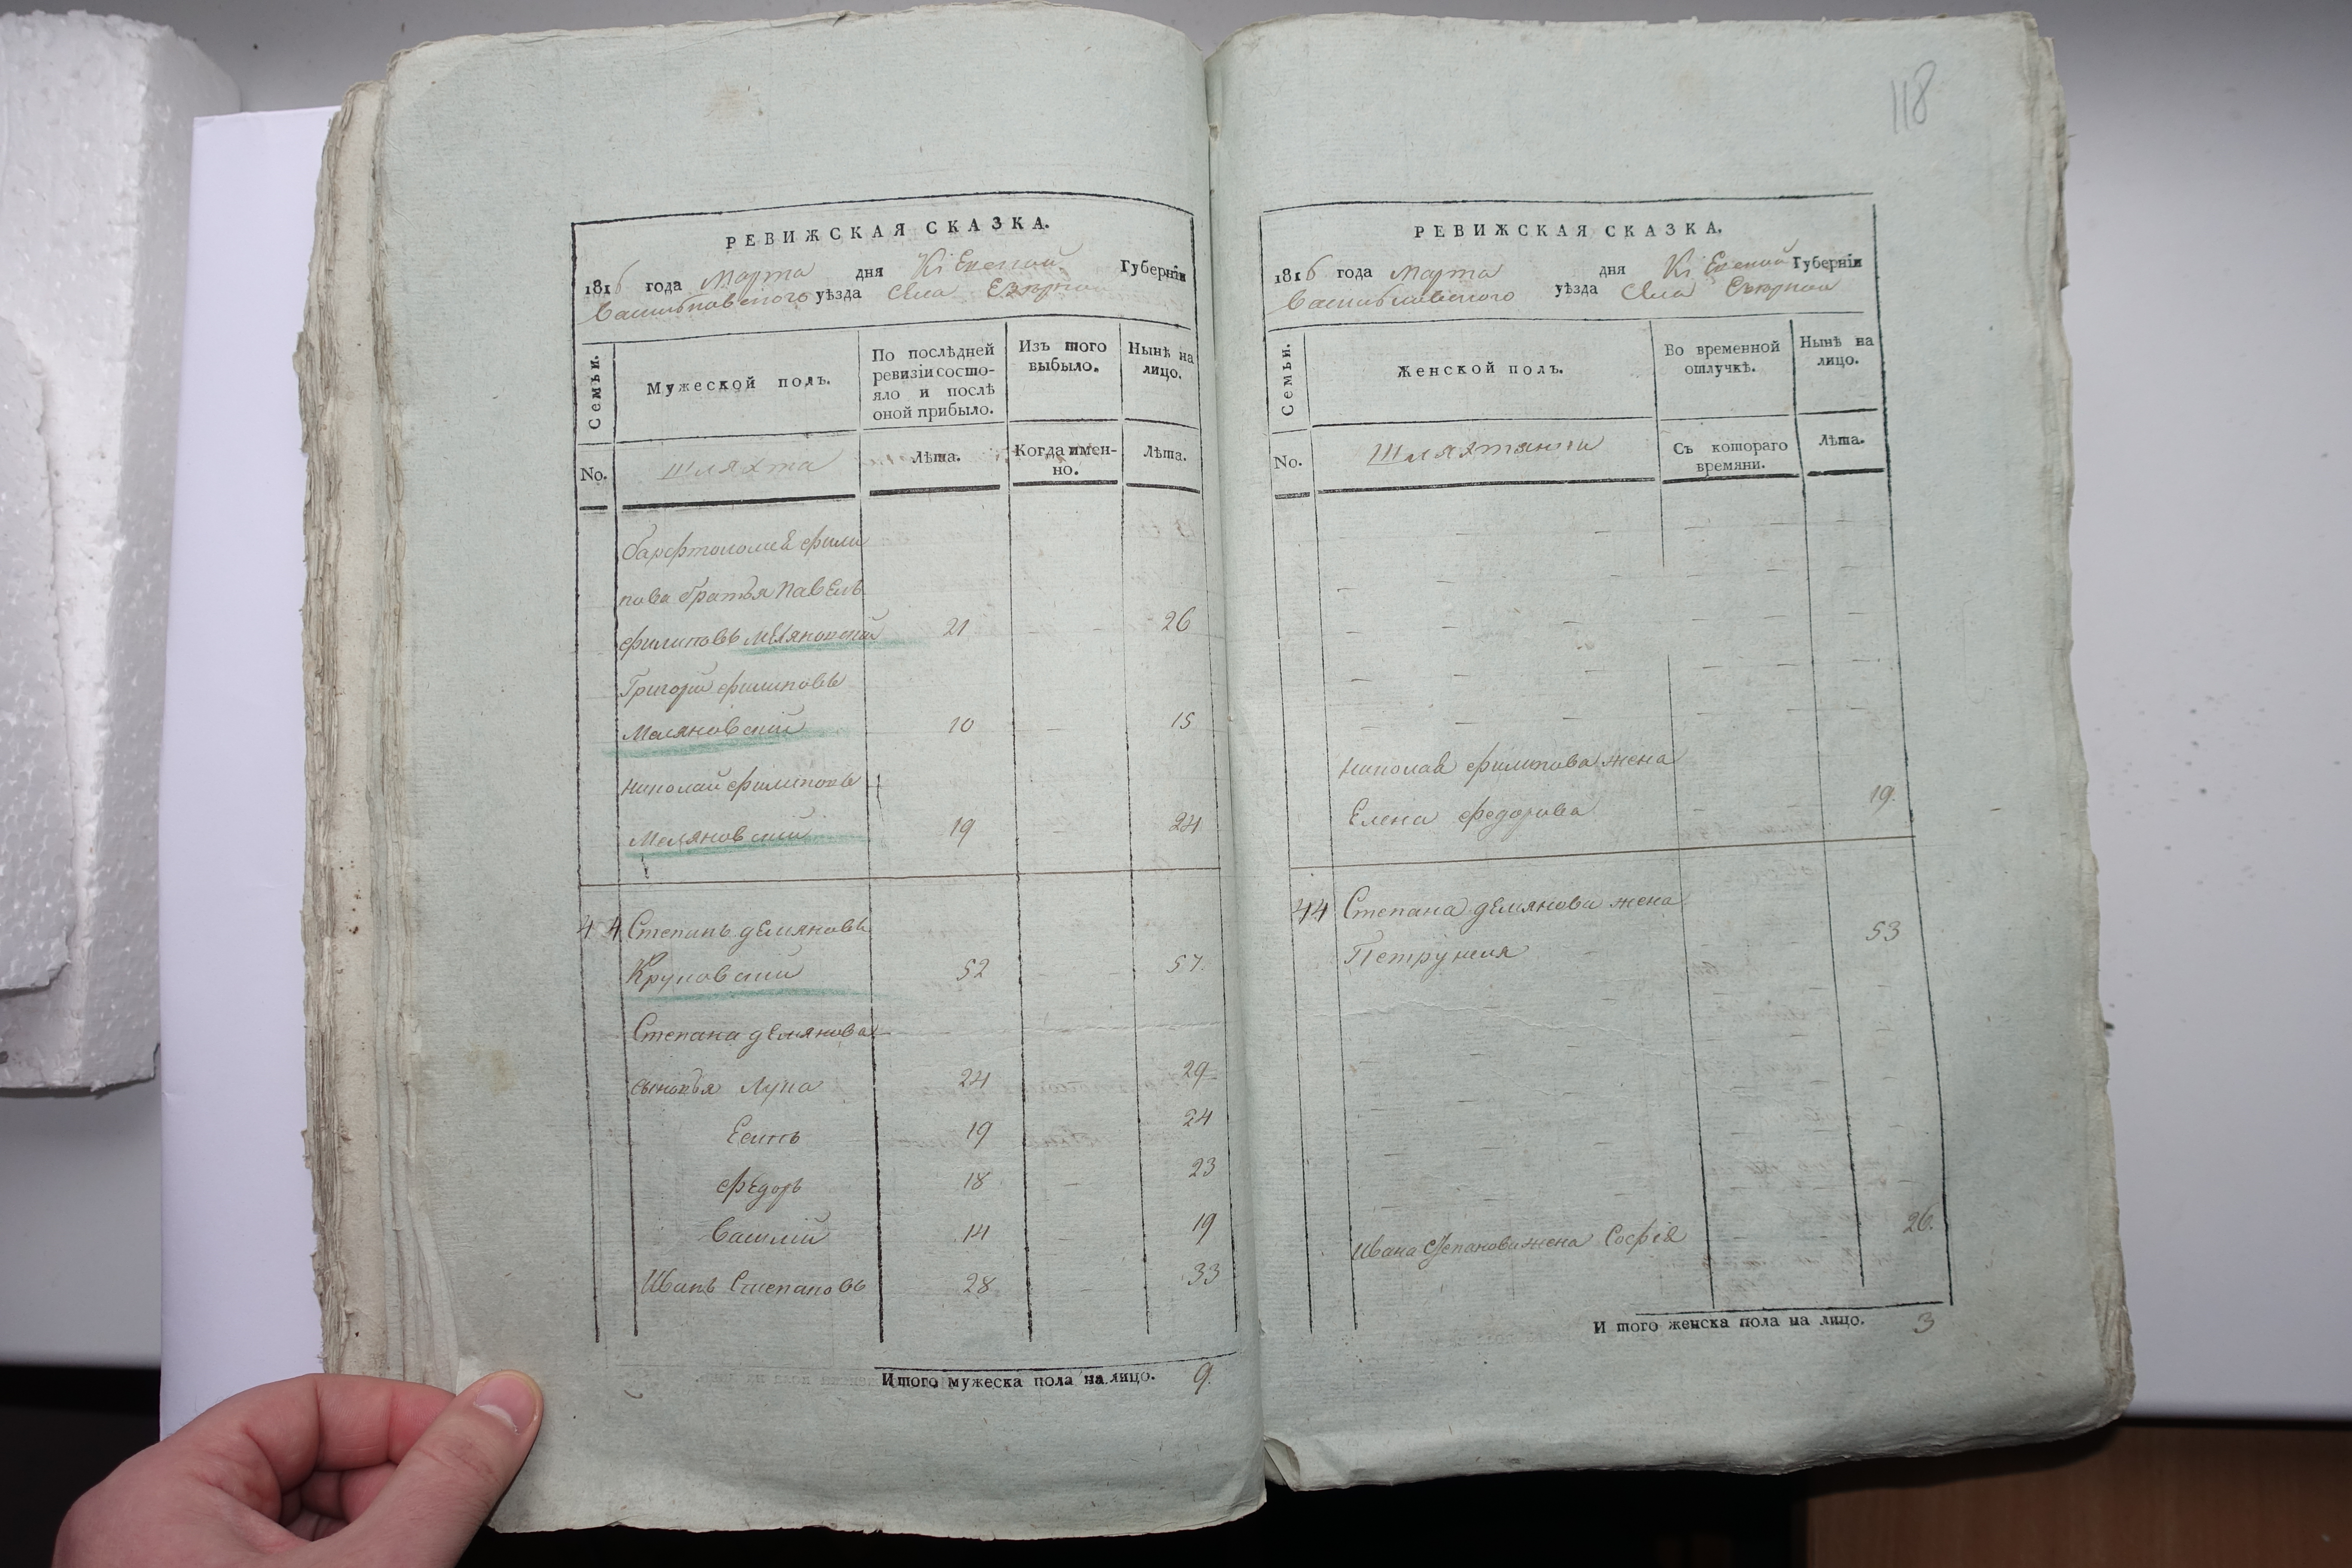 118
РЕВИЖСКАЯ СКАЗКА.
1816 года Марта дня Кіевской Губерніи
Васильковского уѣзда Села
Семьи.
Мужеской полъ.
По послѣдней ревизіи состояло и послѣ оной прибыло.
Изъ того выбыло.
Нынѣ на лицо.
No.
Шляхта
Лѣта.
Когда именно.
Лѣта.
Варфтоломея Фили
пова братья Павелъ
Филиповъ 21 26
Григорій Филиповъ
Меляновскій 10 15
Николай Филиповъ
Меляновскій 19 24
44 Степанъ Демяновъ
Круповскій 52 57.
Степана Демянова
сыновья Лупа 24 29
Есипъ 19 24
Федоръ 18 23
Василій 14 19
Иванъ Степановъ 28 33
Итого мужеска пола на лицо. 9.
РЕВИЖСКАЯ СКАЗКА.
1816 года Марта дня Кіевской Губерніи
Васильковского уѣзда Села
Семьи.
Женской полъ.
Во временной отлучкѣ.
Нынѣ на лицо.
No.
Шляхтянки
Съ котораго времяни.
Лѣта.
Николая Филипова жена
Елена Федорова 19.
44 Степана Демянова жена
Петрунеля 53
Ивана Степанова жена Софія 26.
И того женска пола на лицо. 3